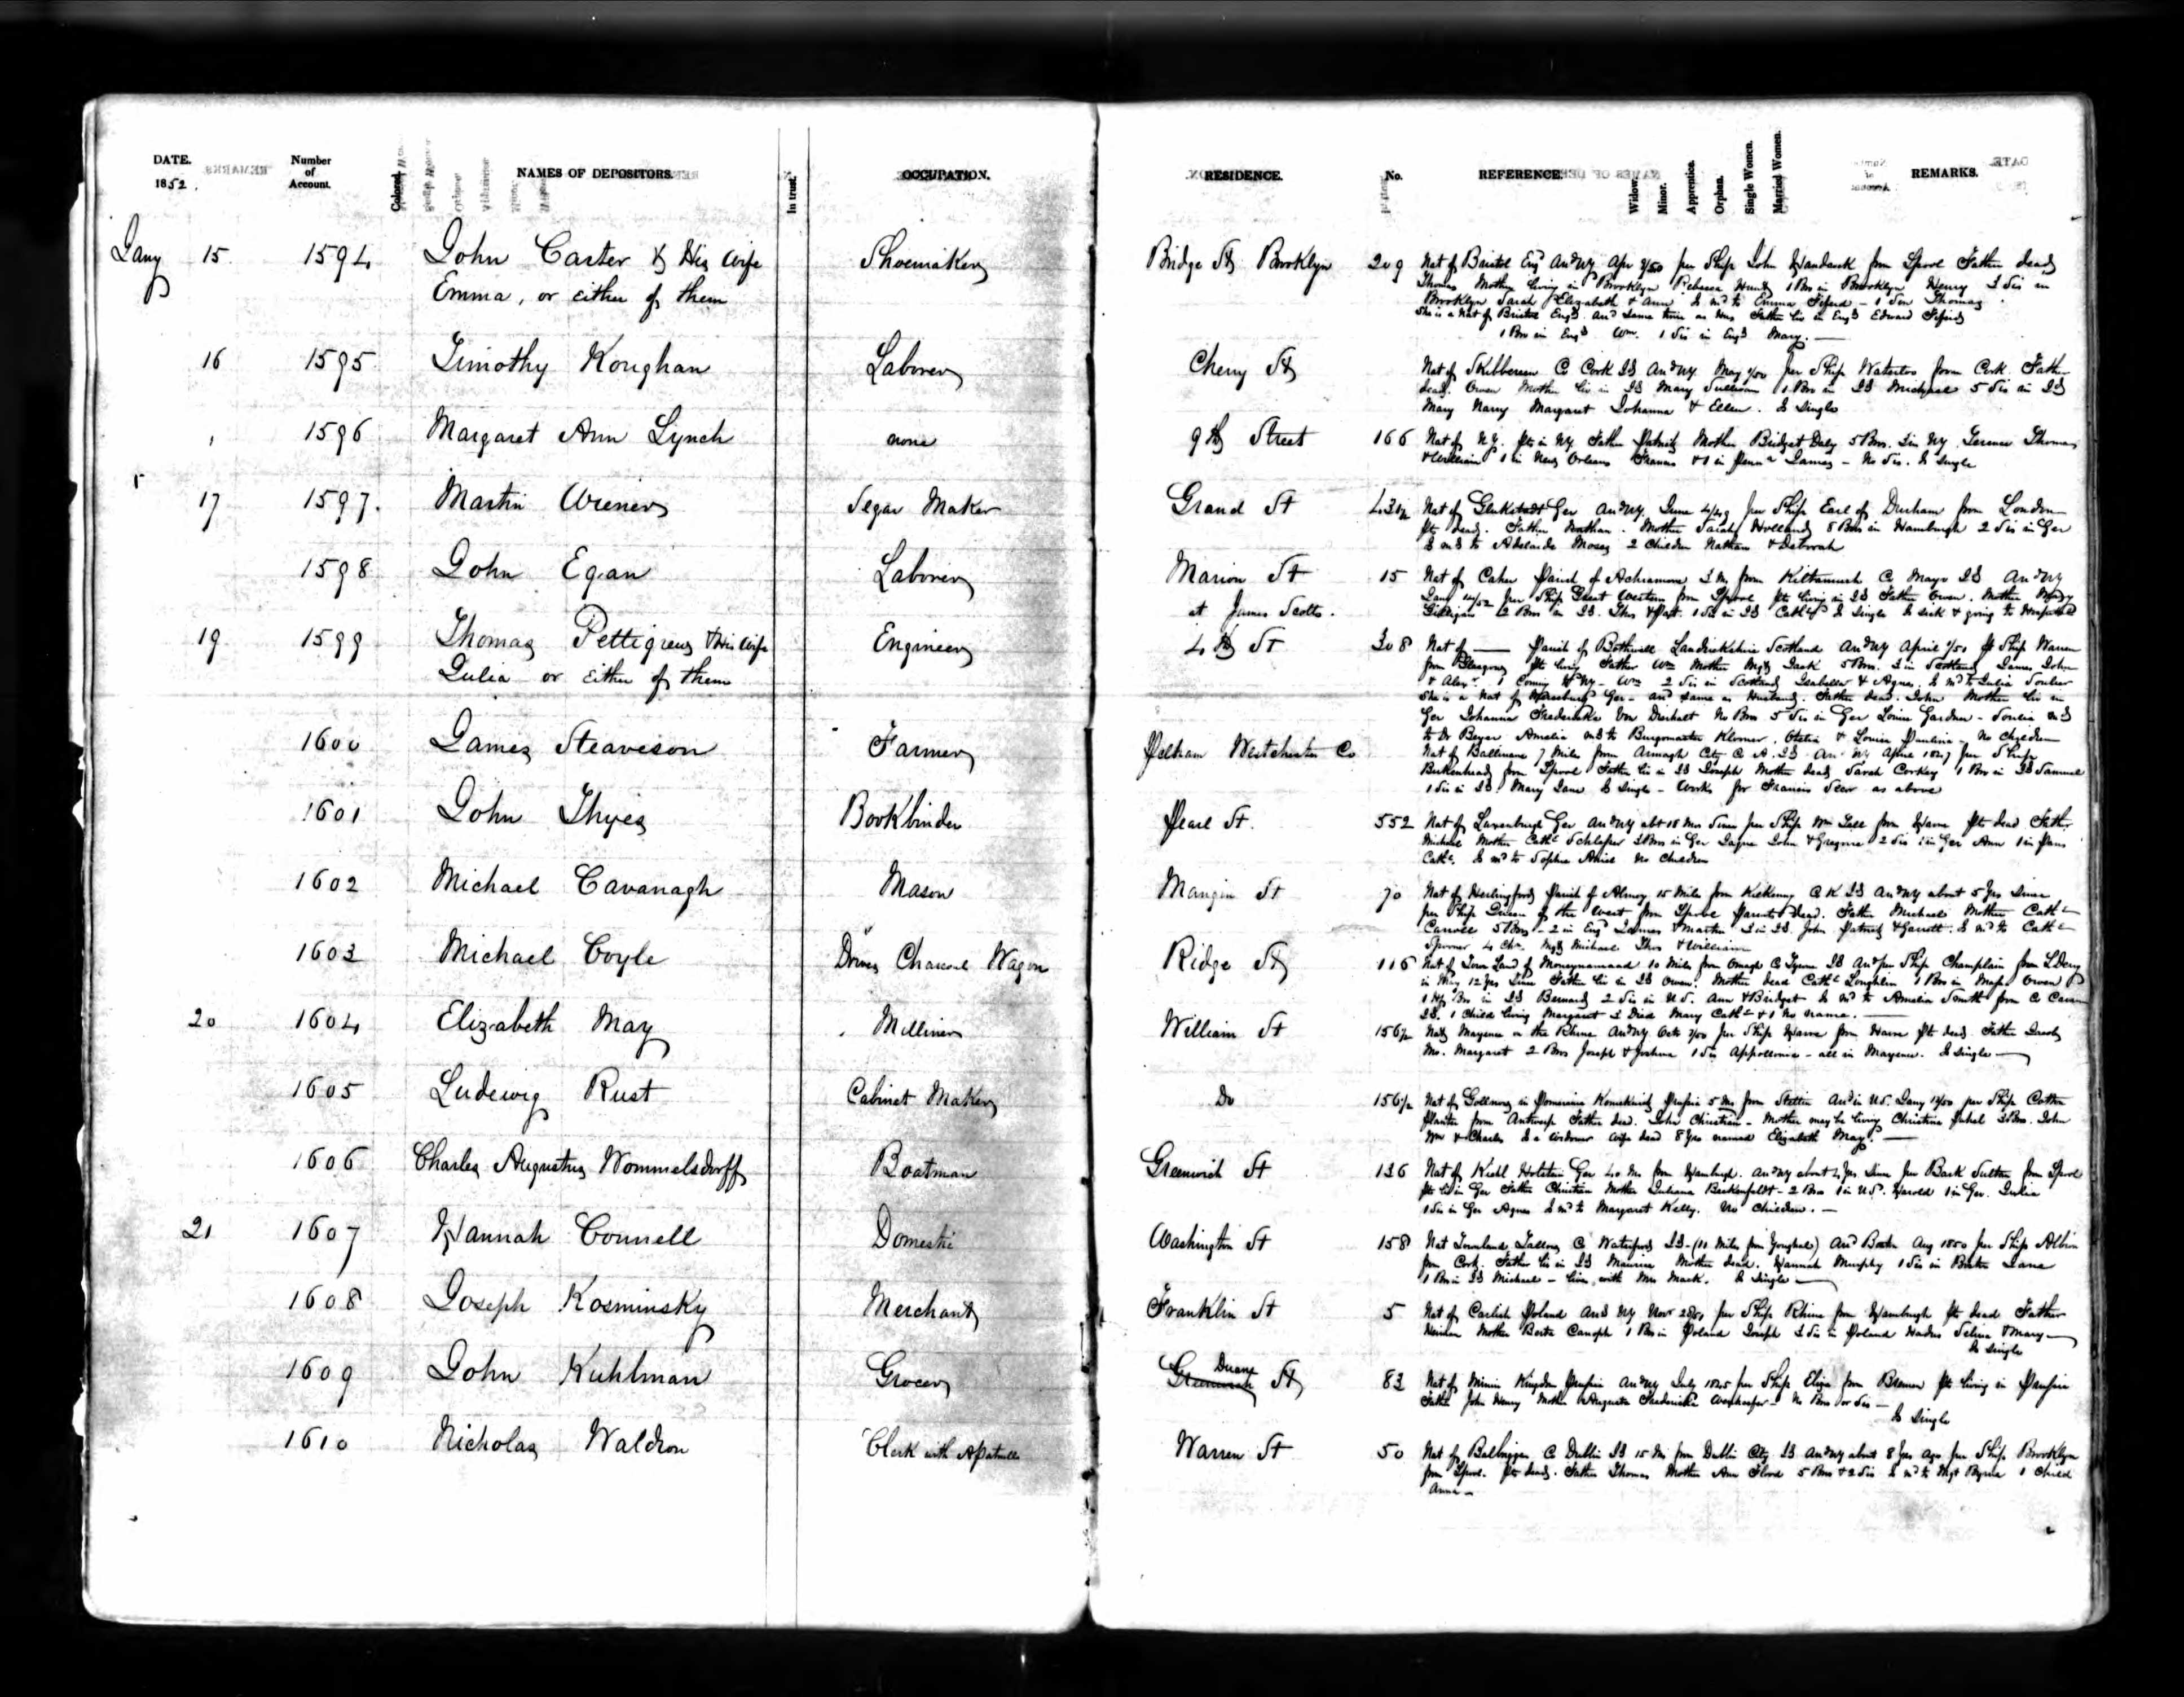 DATE.
1852.
Number
of
Account.
Colored.
NAMES OF DEPOSITORS.
In trust.
OCCUPATION.
RESIDENCE.
No.
REFERENCE.
Widow.
Minor.
Apprentice.
Orphan.
Single Women.
Married Women.
REMARKS.
Jany 15 1594 John Carter & His Wife Shoemaker Bridge St Brooklyn 209 Nat of Bristol Eng Arrd NY Apr /50 per Ship John from Lpool Father dead
Emma, or either of them Thomas Mother living in Brooklyn Rebecca 1 Bro in Brooklyn Henry 3 Sis in
Brooklyn Sarah Elizabeth & Ann Is md to Emma - 1 Son Thomas
She is a Nat of Bristol Engd arrd same time as Father liv in Engd Edward
1 Bro in Engd Wm. 1 Sis in Engd Mary.
16 1595 Timothy Koughan Laborer Cherry St Nat of Skibbereen C Cork Id Arrd NY May /50 per Ship Waterloo from Cork Father
dead. Owen Mother liv in Id Mary Sullivan 1 Bro in Id Michael 5 Sis in Id
Mary Nancy Margaret Johanna & Ellen. Is Single
1596 Margaret Ann Lynch none 9th Street 166 Nat of N.Y. Pts in NY Father Patrick Mother Bridget Daly 5 Bros. 3 in NY Terence Thomas
& William 1 in New Orleans Francis & 1 in Penna James - No Sis. Is Single
17 1597. Martin Wiener Segar Maker Grand St 430½ Nat of Ger Arrd NY June 4/49 per Ship Earl of Durham from London
Pts dead. Father Nathan. Mother Sarah Holland 8 Bros in Hamburgh 2 Sis in Ger
Is md to Adelaide Moses 2 Children Nathan & Deborah
1598 John Egan Laborer Marion St 15 Nat of Caher Parish of 3 Ms from Kiltamurh C Mayo Id Arrd NY
at James Scotts. Jany /52 per Ship Great Western from Lpool Pts living in Id Father Owen. Mother Mary
2 Bros in Id. Thos & Pat. 1 Sis in Id Cath Is Single Is sick & going to
19 1599 Thomas Pettigrew & His Wife Engineer 4th St 308 Nat of — Parish of Bothwell Lanarkshire Scotland Arrd NY April /50 pr Ship Warren
Julia or either of them from Glasgow Pts living Father Wm Mother Mgt 5 Bros. 3 in Scotland James John
& Alexr. 1 coming to NY - Wm 2 Sis in Scotland Isabella & Agnes. Is md to Julia
She is a Nat of Ger - arrd same as Husband. Father dead. John Mother liv in
Ger Johanna Fredericka Von No Bros 5 Sis in Ger Louisa Gardner - md
to Dr Beyer Amelia md to Burgomaster Otelia & Louisa Paulina - No Children
1600 James Steaveson Farmer Pelham Westchester Co Nat of 7 Miles from Armagh City C A. Id Arr NY April 1847 per Ship
Birkenhead from Lpool Father liv in Id Joseph Mother dead Sarah Corkey 1 Bro in Id Samuel
1 Sis in Id Mary Jane Is Single - Works for Francis as above
1601 John Thyes Bookbinder Pearl St. 552 Nat of Luxenburgh Ger Arrd NY abt 18 Mos Since per Ship Wm Tell from Havre Pts dead Fath.
Michael Mother Cath 3 Bros in Ger John & Gregoire 2 Sis 1 in Ger Ann 1 in Paris
Cath. Is md to Sophie No Children
1602 Michael Cavanagh Mason Mangin St 70 Nat of Parish of 15 Miles from Kilkenny C K Id Arrd NY about 5 Yrs Since
per Ship Queen of the West from Lpool Parents dead. Father Michael Mother Cath
Carroll 5 Bros - 2 in Eng James & Martin 3 in Id. John Patrick & Garrett. Is md to Cath
4 Chn. Mgt Michael Thos & William
1603 Michael Coyle Drives Charcoal Wagon Ridge St 116 Nat of Town Land of 10 Miles from Omagh C Tyrone Id Arr per Ship Champlain from LDerry
in May 12 Yrs Since Father liv in Id Owen. Mother dead Cath Loughlin 1 Bro in Owen
1 Hf Bro in Id Bernard 2 Sis in U.S. Ann & Bridget Is md to Amelia Smith from C Cavan
Id. 1 Child living Margaret 3 Died Mary Cath & 1 No name.
20 1604 Elizabeth May Milliner William St 156½ Nat Mayence on the Rhine Arrd NY Octr /50 per Ship Havre from Havre Pts dead. Father Jacob
Mo. Margaret 2 Bros Joseph & Joshua 1 Sis Appollonia - all in Mayence. Is Single
1605 Ludewig Rust Cabinet Maker Do 156½ Nat of Gollnow in Pomerania Prussia 5 Ms from Stettin Arrd in U.S. Jany /50 per Ship Cotton
Planter from Antwerp Father dead. John Christian - Mother may be living Christine 3 Bros. John
Wm & Charles Is a Widower Wife dead 8 Yrs named Elizabeth May.
1606 Charles Augustus Wommelsdorff Boatman Greenwich St 136 Nat of Kiehl Holstein Ger 40 Ms from Hamburgh. Arrd NY about 4 Yrs Since per Bark Sultan from Lpool
Pts liv in Ger Father Christian Mother Juliana 2 Bros 1 in U.S. Harold 1 in Ger. Julia
1 Sis in Ger Agnes Is md to Margaret Kelly. No Children.
21 1607 Hannah Connell Domestic Washington St 158 Nat Townland Tallow C Waterford Id - (11 Miles from Youghal) Arrd Boston Aug 1850 per Ship Albion
from Cork. Father liv in Id Maurice Mother dead. Hannah Murphy 1 Sis in Boston Jane
1 Bro in Id Michael - lives with Mrs Mack. Is Single
1608 Joseph Kosminsky Merchant Franklin St 5 Nat of Poland Arrd NY Novr per Ship Rhine from Hamburgh Pts dead Father
Mother Berta 1 Bro in Poland Joseph 3 Sis in Poland Selina & Mary
Is Single
1609 John Kuhlman Grocer Duane St 83 Nat of Kingdom Prussia Arrd NY July 1845 per Ship Eliza from Bremen Pts living in Prussia
Father John Henry Mother Augusta Fredericka No Bros or Sis
Is Single
1610 Nicholas Waldron Clerk with Warren St 50 Nat of Balbriggan C Dublin Id 15 Ms from Dublin City Id Arrd NY about 8 Yrs ago per Ship Brooklyn
from Lpool. Pts dead. Father Thomas Mother Ann Flood 5 Bros & 2 Sis Is md to Mgt Byrne 1 Child
Anna -